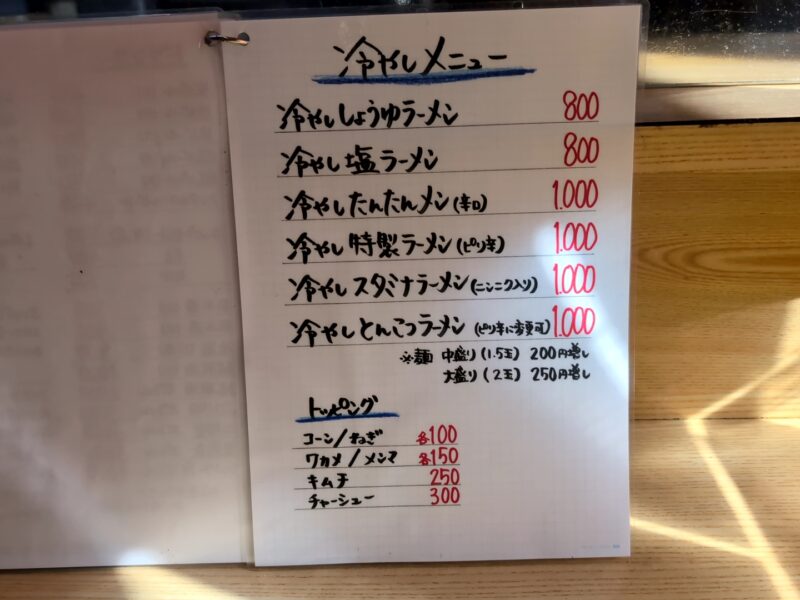 冷やしメニュー
冷やししょうゆラーメン 800
冷やし塩ラーメン 800
冷やしたんたんメン(辛口) 1.000
冷やし特製ラーメン(ピリ辛) 1.000
冷やしスタミナラーメン(ニンニク入り) 1.000
冷やしとんこつラーメン(ピリ辛に変更可) 1.000
※麺 中盛り(1.5玉) 200円増し
大盛り(2玉) 250円増し
トッピング
コーン/ねぎ 各100
ワカメ/メンマ 各150
キムチ 250
チャーシュー 300